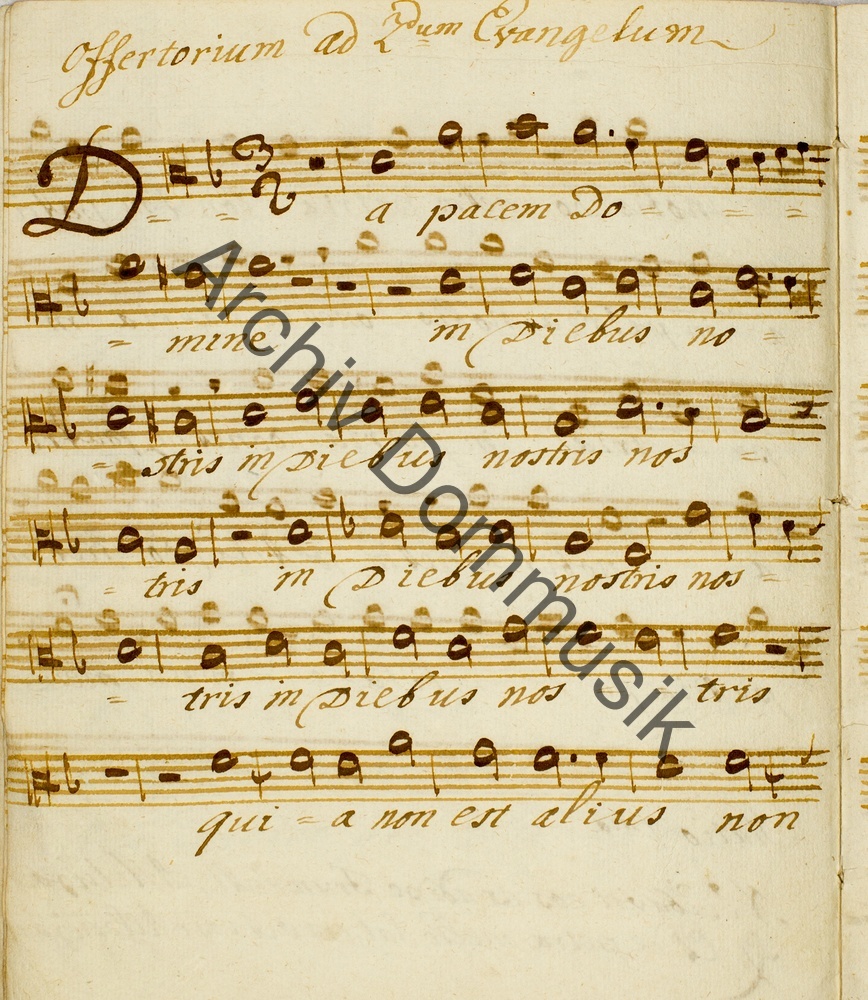 Offertorium ad 2dum Evangelum
3
2
Da pacem Do = = =
= mine in Diebus no =
= stris in Diebus nostris nos =
= tris in Diebus nostris nos =
= tris in Diebus nos - - tris
qui = a non est alius non
Archiv Dommusik